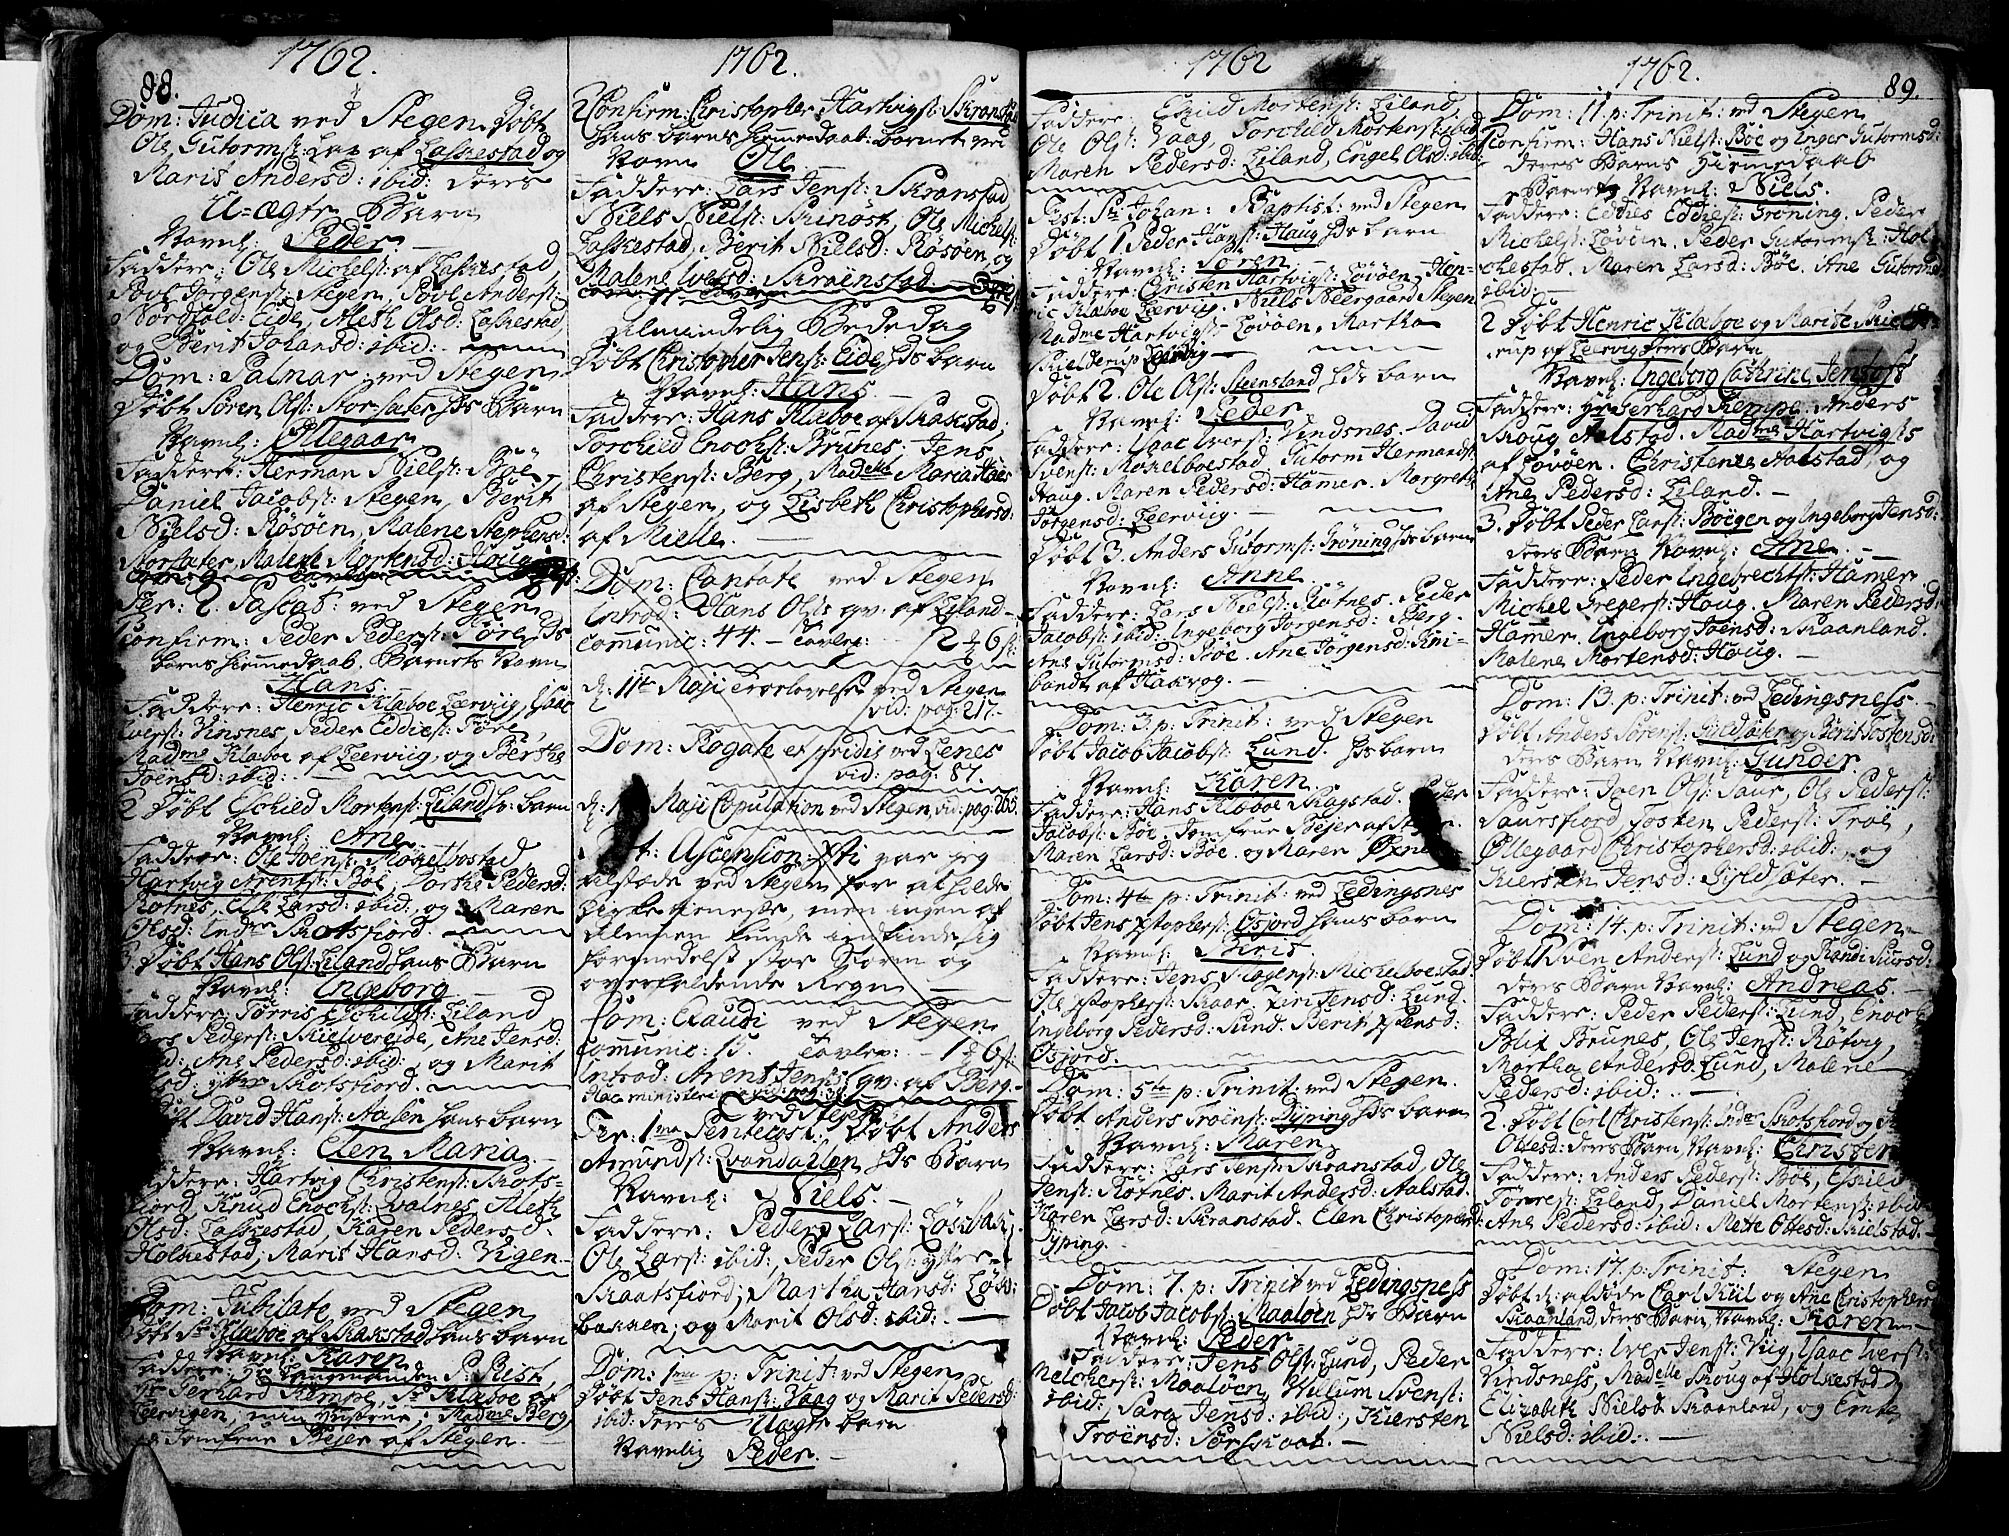 88.
1762.
Dom: Judica ved Stegen. Døbt
Ole Gutormsr: Lax af Laskestad og
Maris Andersd: ibid: deres
U-ægte Barn
Navnl: Peder.
Faddere: Ole Michelsr: af Laskestad,
Povl Jørgensr: Stegen, Povl Andersr:
Nordfold: Eide, Aleth Olsd: Laskestad
og Berit Johansd: ibid:
Dom: Palmar: ved Stegen
Døbt Søren Olsr: Stor-sæter Hs Barn
Navnl: Ollegaar
Faddere: Herman Nielsr: Bøe,
Daniel Jacobsr: Stegen, Berit
Nielsd: Røsøen, Malene Stephensd:
Storsæter, Malene Mortensd: Houg
Fer: 2. Pascat: ved Stegen
Confirm: Peder Pedersr: Føre Hs
barns hiemmedaab. Barnets Navn
Hans
Faddere: Henric Klæboe Leerviig, Isaac
Iversr: Vinsnes, Peder Eddiesr: Føre,
Madme Klæboe af Leerviig, og Berthe
Joensd: ibid:
2 Døbt Eschild Mortensr: Leland hs: barn
Navnl: Ane
Faddere: Ole Joensr: Røkkelbostad,
Hartvig Arentsr: Bøe, Dorthe Pedersd:
Rotnes, Else Larsd: ibid:, og Maren
Olsd: Indre Skotsfiord.
3 Døbt Hans Olsr: Leland hans Barn
Navnl: Ingeborg
Faddere: Torris Eschildsr: Leland,
Lars Pedersr: Skielvereide, Ane Jensd:
ibid: Ane Pedersd: ibid: og Marit
ytter Skotsfiord.
Døbt David Hansr: Aasen hans barn
Navnl: Elen Maria.
Faddere: Hartvig Christensr: Skots-
fiord, Knud Enochsr: Qvalnes, Aleth
Olsd: Laskestad, Karen Pedersd:
Holkestad, Maris Hansd: Vigen.
Dom: Jubilate ved Stegen
Døbt Sr Klæboe af Skakstad hans barn
Navnl: Karen
Faddere: P: Rist,
Hr Gerhard Kempe, Sr Klæboe af
Leervigen, min Hustrue, Madme Berg,
og Jomfrue Bejer af Stegen.
1762.
2 Confirm: Christopher Hartvigsr: Skranstad
hans barns hiemmedaab: barnet ved
Navn Ole
Faddere: Lars Jensr: Skranstad,
Niels Nielsr: Skinøst, Ole Michelsr:
Laskestad, Berit Nielsd: Røsøen, og
Malene Iversd: Skranstad.
Almindelig Bededag
Døbt Christopher Jensr: Eide Hs barn
Navnl: Hans
Faddere: Hans Klæboe af Skakstad,
Torchild Enochsr: Brunes, Jens
Christensr: Berg, Madelle Maria Hoes
af Stegen, og Lisbeth Christophersd:
af Mielle.
Dom: Cantate ved Stegen
Introd: Hans Olsr qv: af Leland
communic: 44. Tavlen: 2 6
d: 11te Maji Troelovelse ved Stegen
vid: pag: 217.
Dom: Rogate et pridie ved Lenes
vid: pag: 87.
d: Maji Copulation ved Stegen vid: pag: 265.
Fest: Ascension: Xti var jeg
tilstæde ved Stegen for at holde
Giestetieneste, men ingen af
Almuen kunde indfinde sig
formedelst stor Storm og
overfaldende Regn
Dom: Exaudi ved Stegen
communic: 15. Tavlen: 1 6
Introd: Arent Jensrs qv: af Berg.
ved Stegen
Fer: 1ma Pentecost: Døbt Anders
Amundsr: Qvandahlen Hs Barn
Navnl: Niels.
Faddere: Peder Larsr: Løsbak,
Ole Larsr: ibid:, Peder Olsr: yttre
Skaatsfiord, Martha Hansd: Løbs-
bakken, og Marit Olsd: ibid:
Dom: 1ma p: Trinit: ved Stegen
Døbt Jens Hansr: Vaag og Marit Pedersd:
ibid: deres Uægte barn
Navnlig Peder.
1762
Faddere: Eschild Mortensr: Leland,
Ole Olsr: Vaag, Torchild Mortensr: ibid:
Maren Pedersd: Leland, Engel Olsd: ibid:
Fest: Sti Johan: Baptist: ved Stegen
Døbt 1 Peder Hansr: Haug Hs barn
Navnl: Søren
Faddere: Christen Hartvigsr: Løvøen, Hen-
ric Klæboe Leervig. Niels Neergaard Stegen
Madme Hartvigs Løvøen, Martha
Skielderup Leervig
Døbt 2. Ole Olsr: Steensland Hs barn
Navnl: Peder
Faddere: Isaac Iversr: Vindsnes. David
Svensr: Mickelboestad Gutorm Hermandsr:
Haug. Maren Pedersd: Hamer. Margrethe
Jørgensd: Leerviig.
Døbt 3. Anders Gutormsr: Grøning Hs barn
Navnl: Anne
Faddere: Lars Nielsr: Røtnes. Peder
Jacobsr: ibid: Ingeborg Jørgensd: Berg.
Ane Gutormsd: Bøe. Ane Jørgensd: Kni-
bandt af Haarvog.
Dom: 3. p: Trinit: ved Stegen
Døbt Jacob Jacobsr: Lund. Hs barn
Navnl: Karen
Faddere: Hans Klæboe Skagstad. Peder
Jacobsr: Bøe. Jomfrue Bejer af Stegen.
Maren Larsd: Bøe. og Maren Øxnes
Dom: 4te p: Trinit: ved Ledingsnes
Døbt Jens Xstophersr: Osjord hans barn
Navnl: Beris
Faddere: Jens Hagensr: Michelboestad
Ole Xstophersr: Skaar. Siri Jensd: Lund.
Ingeborg Pedersd: Sund. Berit Xstensd:
Osjord.
Dom: 5te p: Trinit: ved Stegen.
Døbt Anders Troensr: Dyping Hs barn
Navnl: Maren
Faddere: Lars Jensr: Skranstad, Ole
Jensr: Rotnes. Marit Andersd: Aalstad.
Karen Larsd: Skranstad. Elen Christophersd:
Dyping.
Dom: 7. p: Trinit ved Ledingsness
Døbt Jacob Jacobsr: Maaløen Hs Barn
Navnl: Peder
Faddere: Jens Olsr: Lund, Peder
Melchersr: Maaløen, Willum Svensr:
ibid:, Sara Jensd: ibid:, Kiersten
Troensd: Sørskaat.
1762.
89.
Dom: 11. p: Trinit: ved Stegen
Confirm: Hans Nielsr: Bøe og Inger Gutormsd:
deres Barns Hiemmedaab
Barnets Navnl: Niels.
Faddere: Eddies Eddiesr: Grøning. Peder
Michelsr: Løvøen. Peder Gutormsr: Hol-
ckestad. Maren Larsd: Bøe. Ane Gutormsd:
ibid:
2 Døbt Henric Klæboe og Marithe Skield-
erup af Leervig deres Barn
Navnl: Ingeborg Cathrine Jentoft
Faddere: Hr Gerhard Kempe. Anders
Skoug Aalstad. Madme Hartvigs
af Løvøen. Christense Aalstad, og
Ane Pedersd: Leland.
3. Døbt Peder Larsr: Bøegen og Ingeborg Jensd:
deres Barn Navnl: Ane
Faddere: Peder Ingebrechtsr: Hamer.
Michel Gregersr: Houg. Maren Pedersd:
Hamer. Ingeborg Joensd: Skaanland.
Malene Mortensd: Houg.
Dom: 13. p: Trinit: ved Ledingsness
Døbt Anders Sørensr: Guldsæter og Berit Tostensd:
deres Barn Navnl: Gunder.
Faddere: Joen Olsr: Saur, Ole Pedersr:
Saursfiord Tosten Pedersr: Troe,
Øllegaard Christophersd: ibid: og
Kiersten Jensd: Gyldsæter.
Dom: 14. p: Trinit: ved Stegen
Døbt 1 Sven Andersr: Lund og Randi Siursd:
deres Barn Navnl: Andreas
Faddere: Peder Pedersr: Lund, Enoch
Blix Brunes, Ole Jensr: Røtvig,
Martha Andersd: Lund, Malene
Pedersd: ibid:
2. Døbt Carl Christensr: Indre Skotsfiord og
Ottesd: deres Barn, Navnl: Christen
Faddere: Anders Pedersr: Bøe, Eskild
Torresr: Leland, Daniel Mortensr: ibid:
Ane Pedersd: ibid: Mette Ottesd: Skielstad.
Dom: 17. p: Trinit: Stegen
Døbt d: afdøde Carl Kiil og Ane Christophersd:
Skaanland, deres Barn, Navnl: Karen
Faddere: Iver Jensr: Viig, Isaac Iversr:
Vindsness, Madelle Skoug af Holkestad
Elizabeth Nielsd: Skaanland, og Emke
Nielsd: ibid: